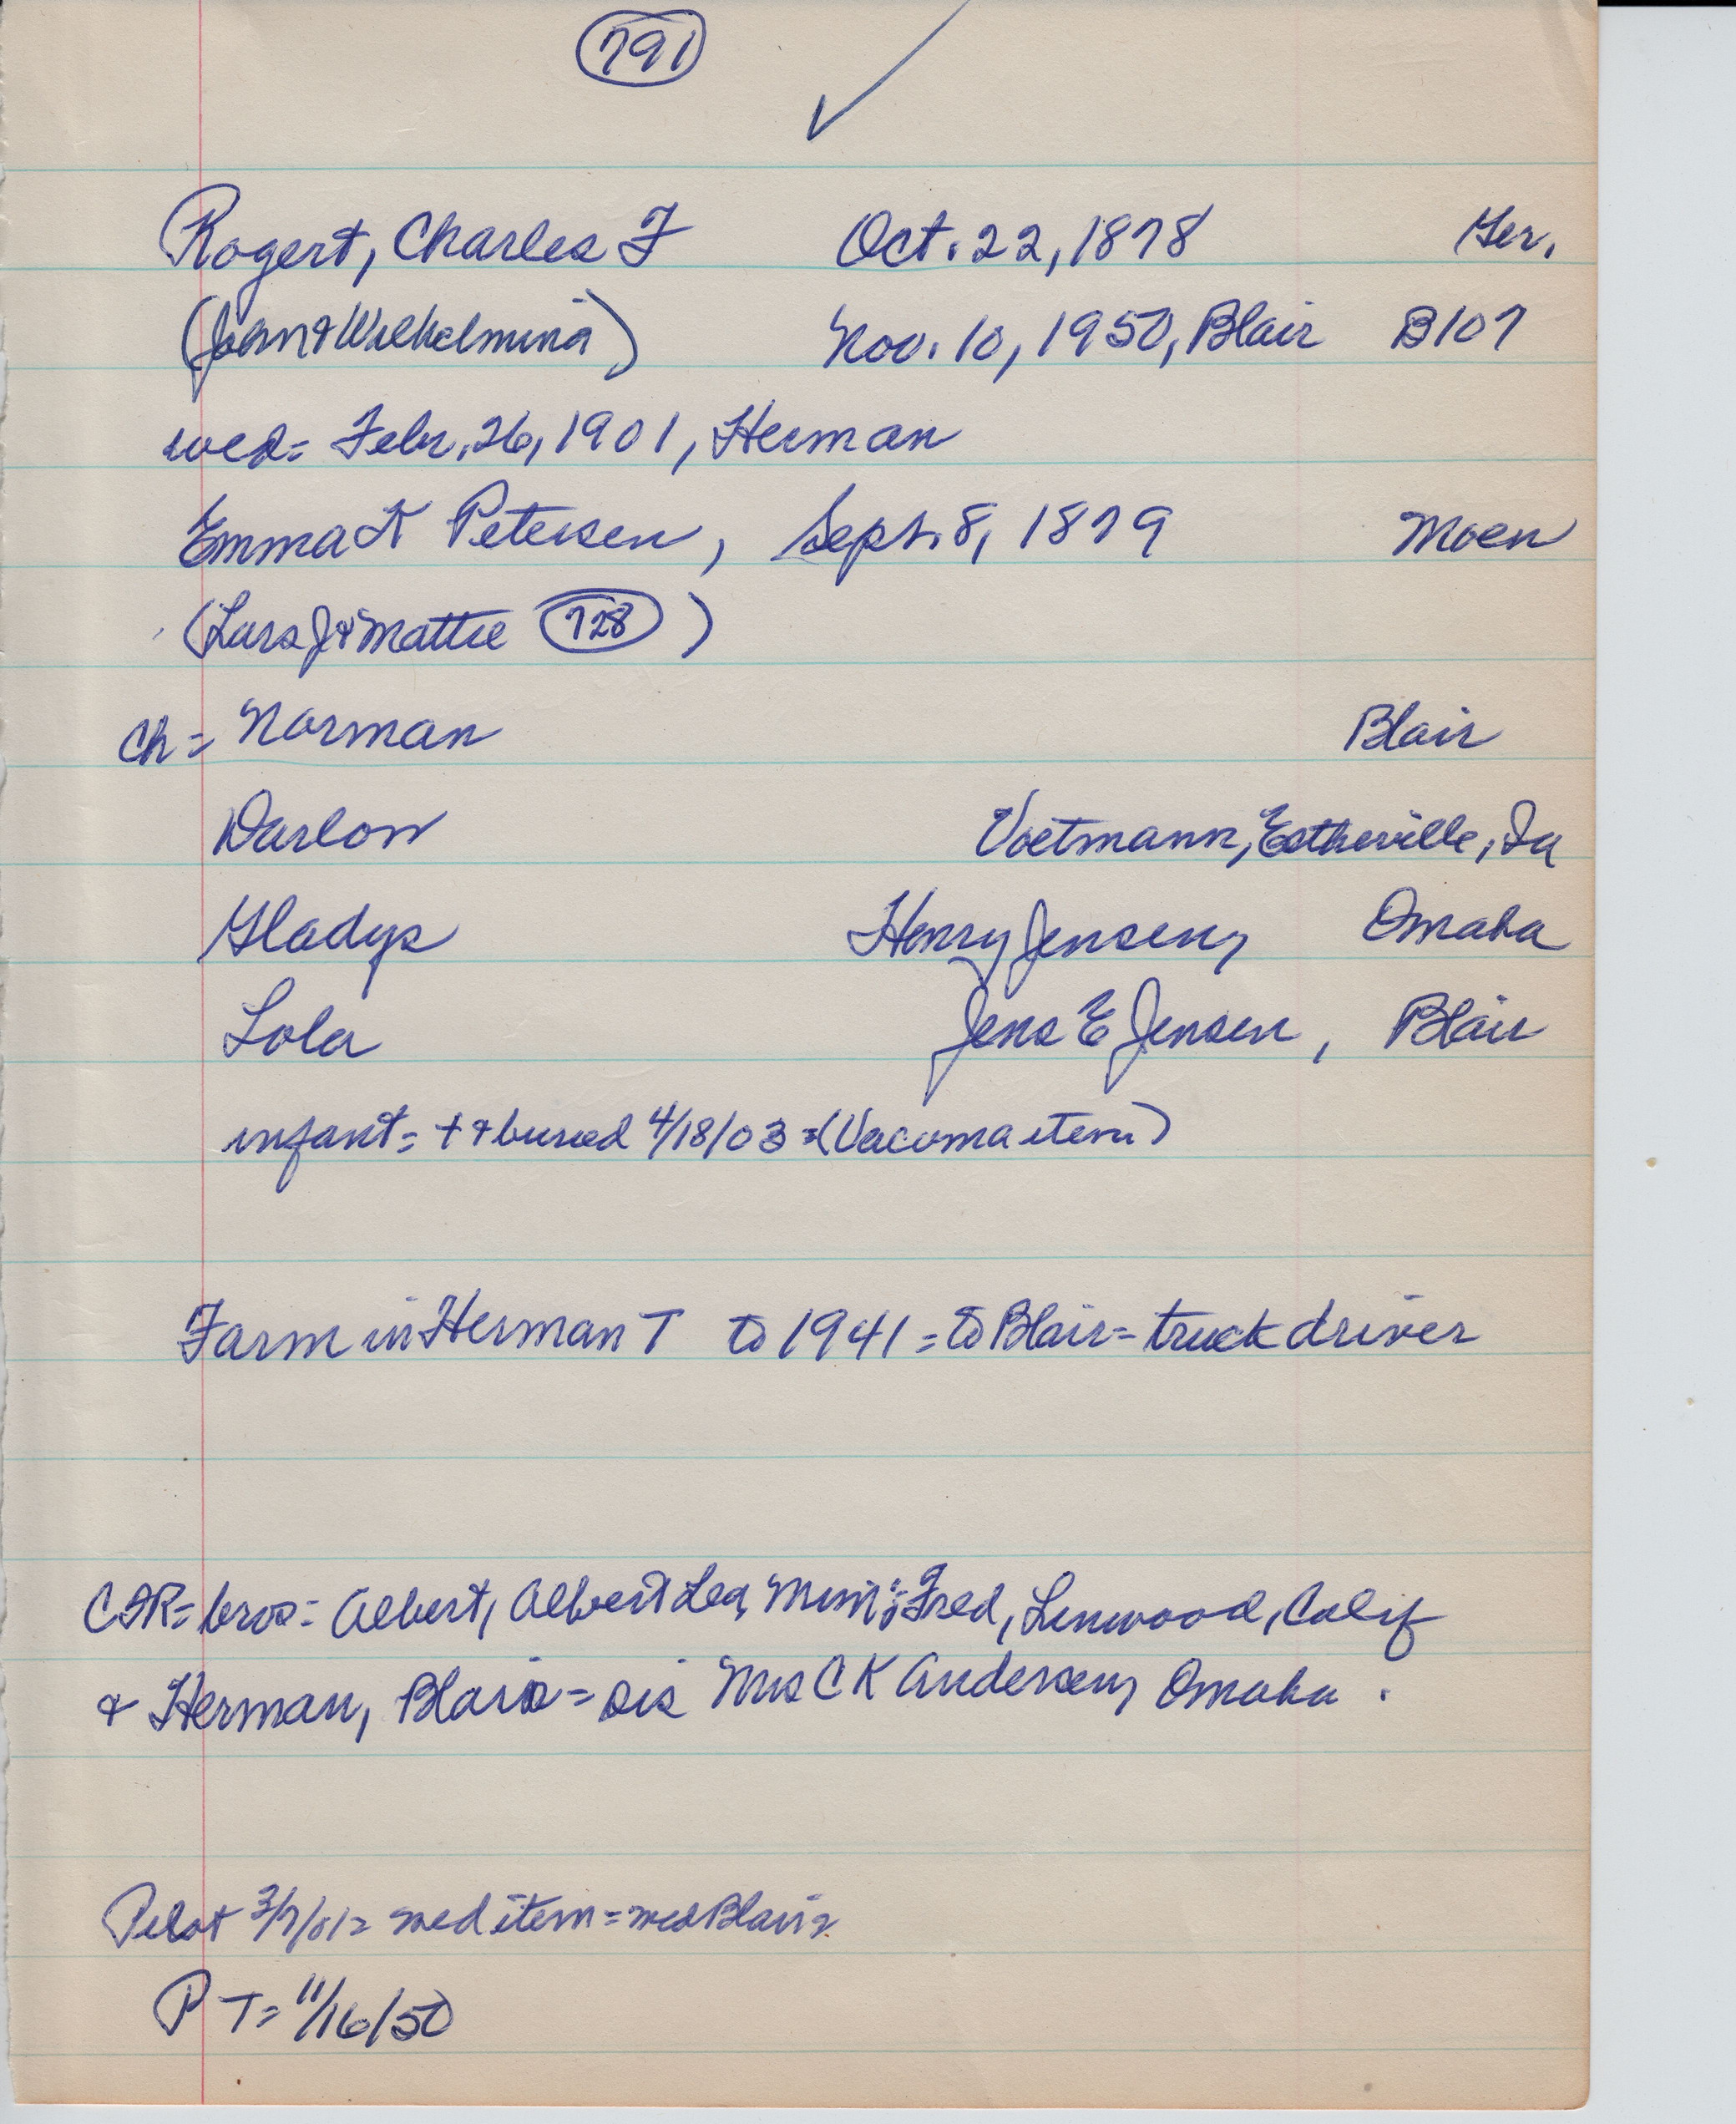 791 ✓
Rogert, Charles F Oct. 22, 1878 Ger.
(John & Wilhelmina) Nov. 10, 1950, Blair B107
wed= Febr. 26, 1901, Herman
Emma K Petersen, Sept. 8, 1879 Moen
(Lars J & Mattie 728)
Ch= Norman Blair
Darlow Voetmann, Estherville, Ia
Gladys Henry Jensen, Omaha
Lola Jens E Jensen, Blair
infant= + & buried 4/18/03 = (Vacoma item)
Farm in Herman T to 1941 = to Blair= truck driver
CFR= bros= Albert, Albert Lea, Minn; Fred, Linwood, Calif
& Herman, Blair= sis Mrs C K Andersen, Omaha.
Pilot 3/7/01= wed item= wed Blair=
P T= 11/16/50